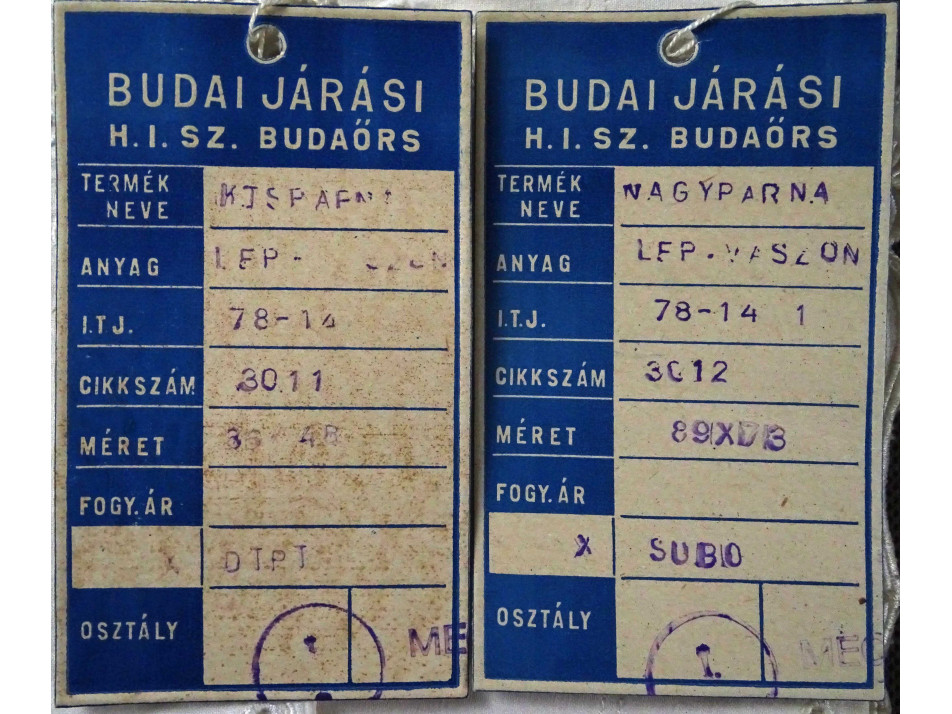 BUDAI JÁRÁSI
H.I.SZ. BUDAÖRS
TERMÉK NEVE KISPARNA
ANYAG LEP-
I.T.J. 78-14
CIKKSZÁM 3011
MÉRET 48
FOGY.ÁR
X
OSZTÁLY 1.
BUDAI JÁRÁSI
H.I.SZ. BUDAÖRS
TERMÉK NEVE NAGYPARNA
ANYAG LEP.VASZON
I.T.J. 78-14 1
CIKKSZÁM 3012
MÉRET
FOGY.ÁR
X SUBO
OSZTÁLY I.